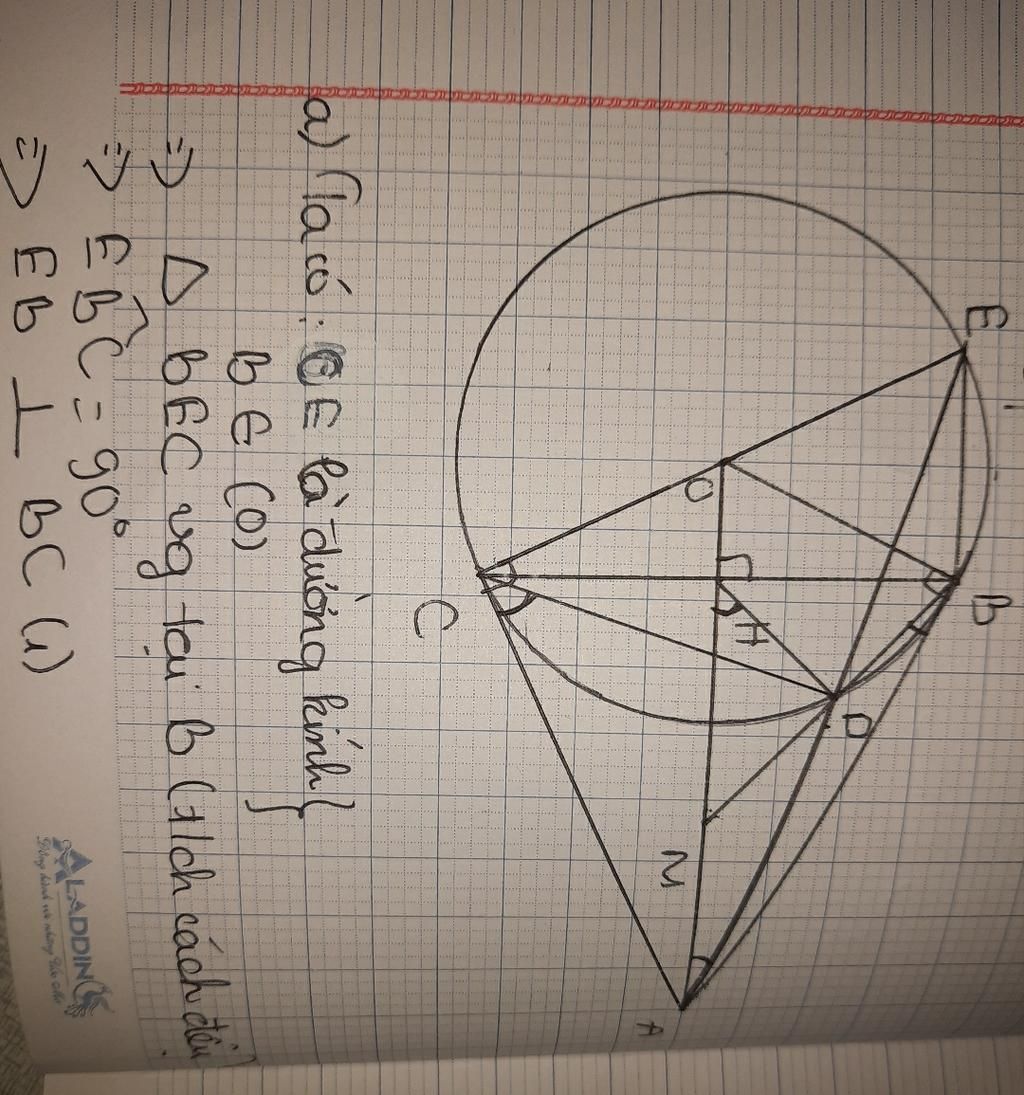 E
B
O
H
D
C
M
A
a) Ta có: CE là đường kính }
B ∈ (O)
=> Δ BEC vg tại B (T/ch cách đều)
=> EBC = 90°
=> EB ⊥ BC (1)
ALADDIN